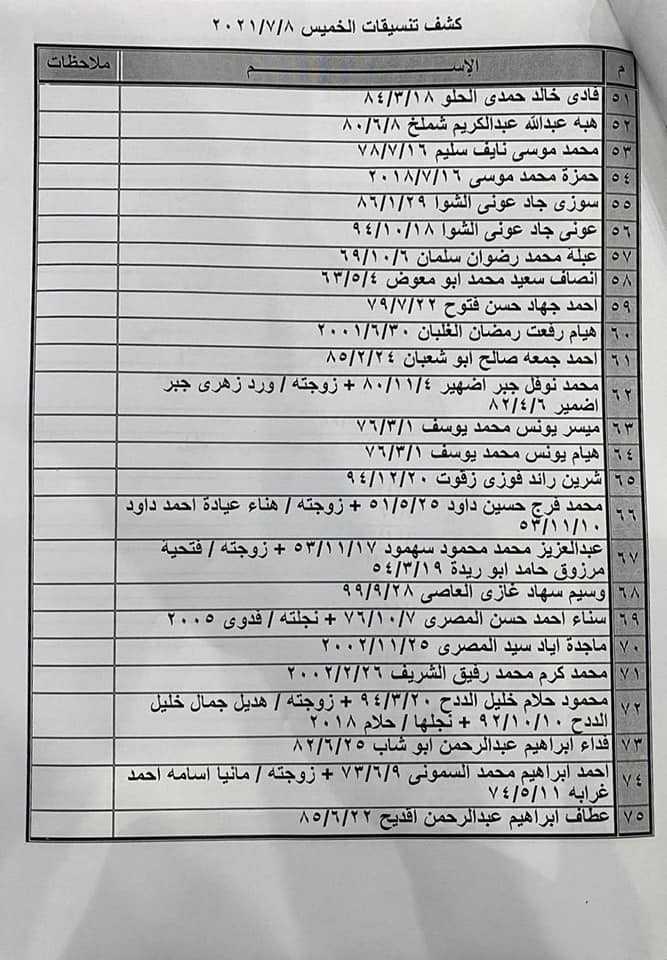 كشف تنسيقات الخميس ٢٠٢١/٧/٨
م الإســـــــم ملاحظات
٥١ فادى خالد حمدى الحلو ٨٤/٣/١٨
٥٢ هبه عبدالله عبدالكريم شملخ ٨٠/٦/٨
٥٣ محمد موسى نايف سليم ٧٨/٧/١٦
٥٤ حمزة محمد موسى ٢٠١٨/٧/١٦
٥٥ سوزى جاد عونى الشوا ٨٦/١/٢٩
٥٦ عونى جاد عونى الشوا ٩٤/١٠/١٨
٥٧ عبلة محمد رضوان سلمان ٦٩/١٠/٦
٥٨ انصاف سعيد محمد ابو معوض ٦٣/٥/٤
٥٩ احمد جهاد حسن فتوح ٧٩/٧/٢٢
٦٠ هيام رفعت رمضان الغلبان ٢٠٠١/٦/٣٠
٦١ احمد جمعه صالح ابو شعبان ٨٥/٢/٢٤
٦٢ محمد نوفل جبر اضهير ٨٠/١١/٤ + زوجته / ورد زهرى جبر
اضمير ٨٢/٤/٦
٦٣ ميسر يونس محمد يوسف ٧٦/٣/١
٦٤ هيام يونس محمد يوسف ٧٦/٣/١
٦٥ شرين رائد فوزى زقوت ٩٤/١٢/٢٠
٦٦ محمد فرج حسين داود ٥١/٥/٢٥ + زوجته / هناء عيادة احمد داود
٥٣/١١/١٠
٦٧ عبدالعزيز محمد محمود سهمود ٥٣/١١/١٧ + زوجته / فتحية
مرزوق حامد ابو ريدة ٥٤/٣/١٩
٦٨ وسيم سهاد غازى العاصى ٩٩/٩/٢٨
٦٩ سناء احمد حسن المصرى ٧٦/١٠/٧ + نجلته / فدوى ٢٠٠٥
٧٠ ماجدة اياد سيد المصرى ٢٠٠٢/١١/٢٥
٧١ محمد كرم محمد رفيق الشريف ٢٠٠٢/٢/٢٦
٧٢ محمود حلام خليل الددح ٩٤/٣/٢٠ + زوجته / هديل جمال خليل
الددح ٩٢/١٠/١٠ + نجلها / حلام ٢٠١٨
٧٣ فداء ابراهيم عبدالرحمن ابو شاب ٨٢/٦/٢٥
٧٤ احمد ابراهيم محمد السمونى ٧٣/٦/٩ + زوجته / مانيا اسامه احمد
غرابه ٧٤/٥/١١
٧٥ عطاف ابراهيم عبدالرحمن اقديح ٨٥/٦/٢٢